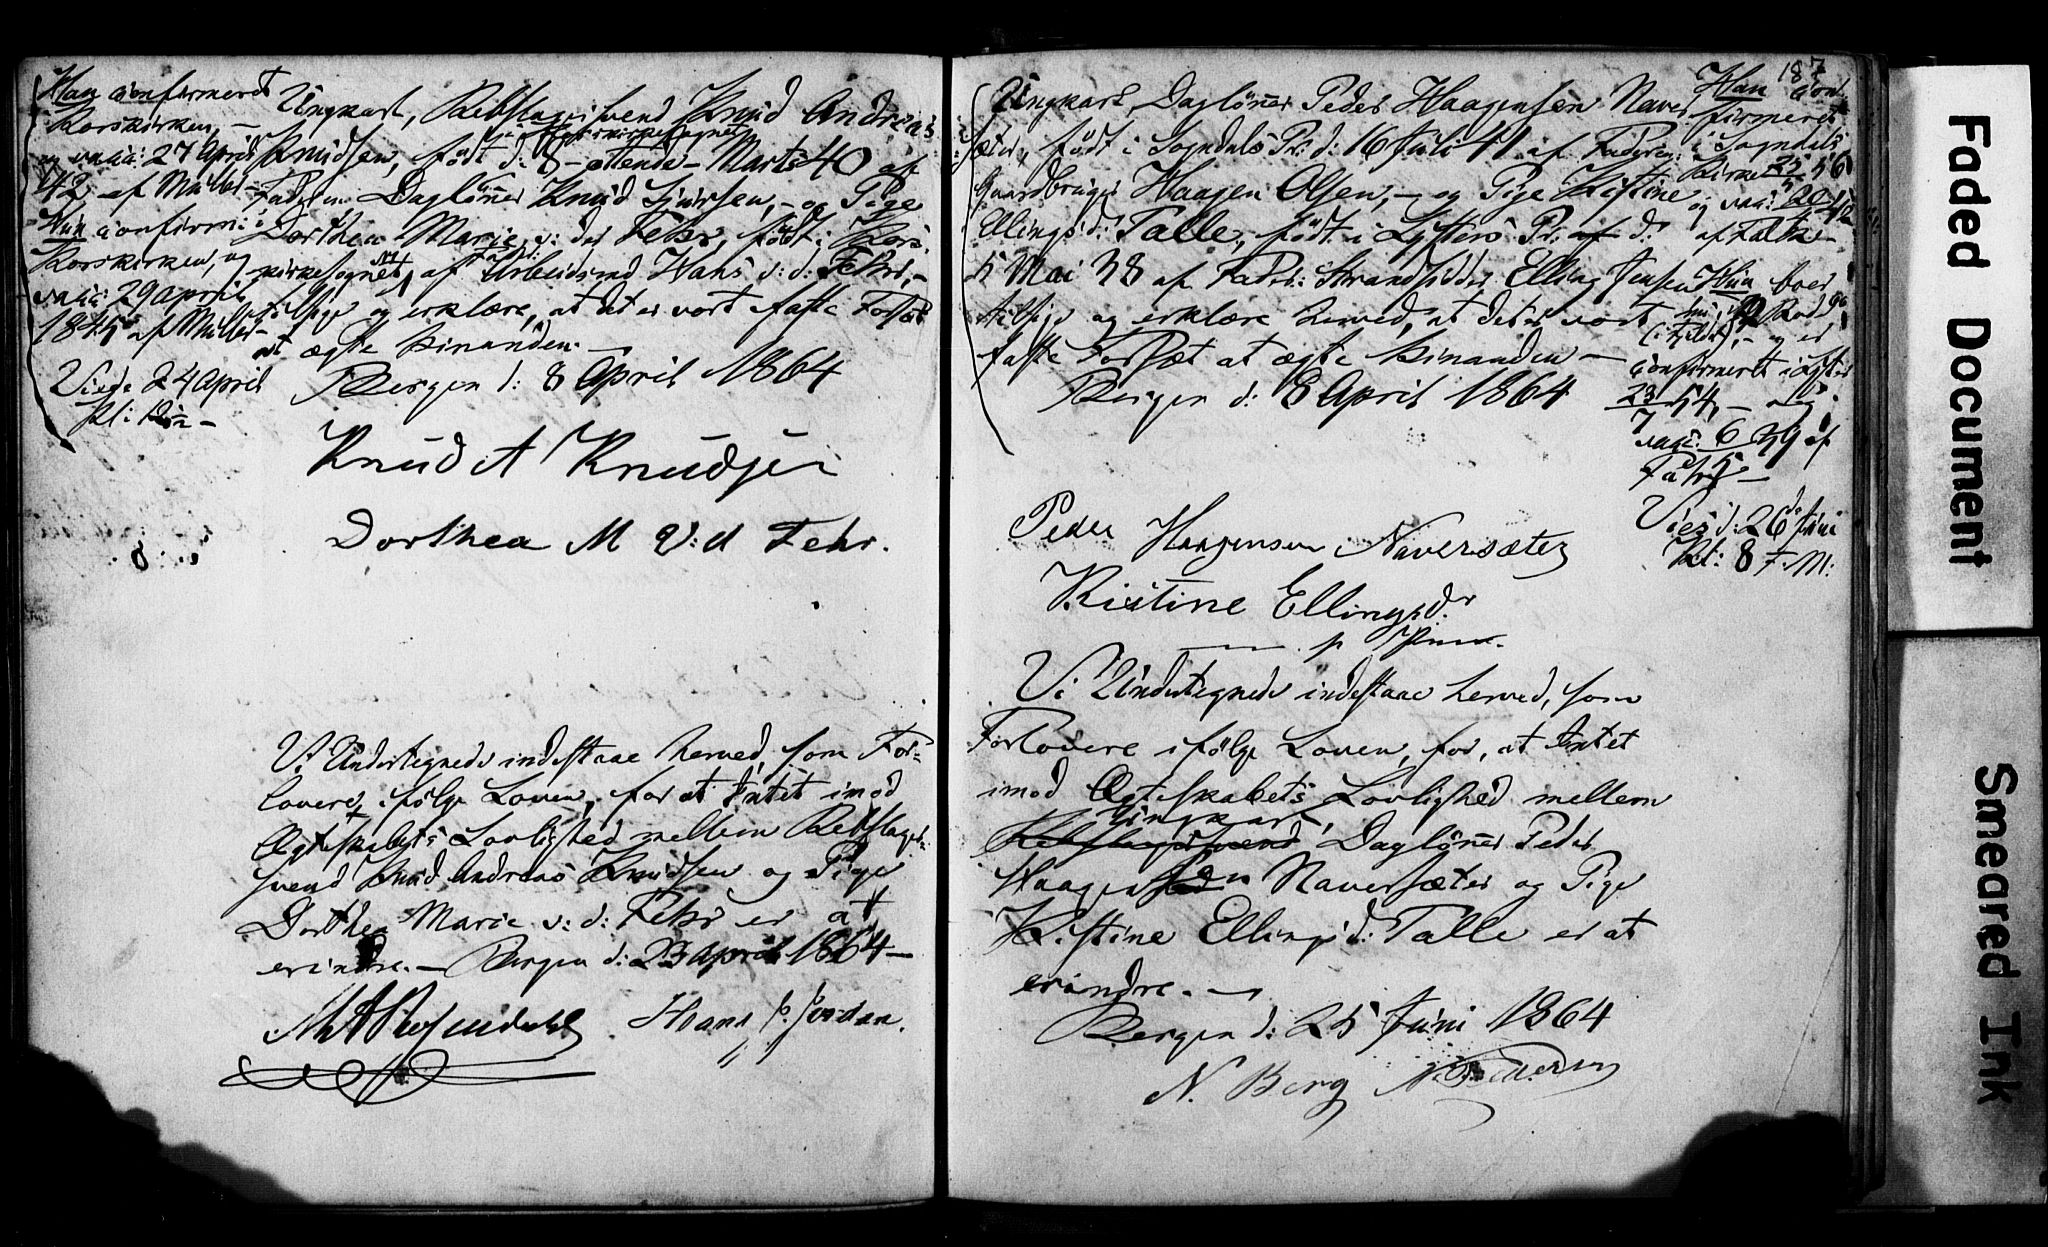 Han confirmeret
Korskirken, –
og vacc: 27 April
42 af Müller –
Hun confirm: i
Korskirken, og
vacc: 29 April
1845 af Müller –
Viede 24 April
Kl: 12
Ungkarl, Rebslagersvend Knud Andreas
Knudsen, født d: 8 – ottende – Marts 40 af
Faderen Dagløner Knud Sjursen, – og Pige
Dorthea Marie v: der Fehr, født i Kors-
kirkesognet, af Arbeidsmd Hans v: d: Fehr, –
tilsige og erklære, at det er vort faste Forsæt
at ægte hinanden. –
Bergen d: 8 April 1864
Knud A Knudsen
Dorthea M V: d Fehr.
Vi Undertegnede indestaae herved, som For-
lovere, ifølge Loven, for at Intet imod
Ægteskabets Lovlighed mellem Rebslager-
svend Knud Andreas Knudsen og Pige
Dorthea Marie v: d: Fehr er at
erindre. – Bergen d: 23 April 1864 –
Hans Jordan.
187
Ungkarl, Dagløner Peder Haagensen Naver-
sæter, født i Sogndals Pr: d: 16 Juli 41 af Faderen:
Gaardbruger Haagen Olsen, – og Pige Kistine
Ellingsd: Talle, født i Lysters Pr: af d:
5 Mai 38 af Fader: Strandsidder Elling Jensen
tilsige og erklære herved, at det er vort
faste Forsæt at ægte hinanden –
Bergen d: 8 April 1864
Han con-
firmeret
i Sogndals
Kirke 25 56
og vacc: 20 42
af Falk –
Hun boer
og er
confirmeret i Lyster
23/7 54, – og
vacc: 6/5 39 af
Viet d: 26 Juni
Kl: 8 F. M:
Peder Haagensen Naversæter
Kistine Ellingsdr
Vi Undertegnede indestaae herved, som
Forlovere ifølge Loven, for, at Intet
imod Ægteskabets Lovlighed mellem
Ungkarl,
Rebslagersvend Dagløner Peder
Haagensen Naversæter og Pige
Kistine Ellingsd: Talle er at
erindre. –
Bergen d: 25 Juni 1864
N. Berg
Faded Document
Smeared Ink